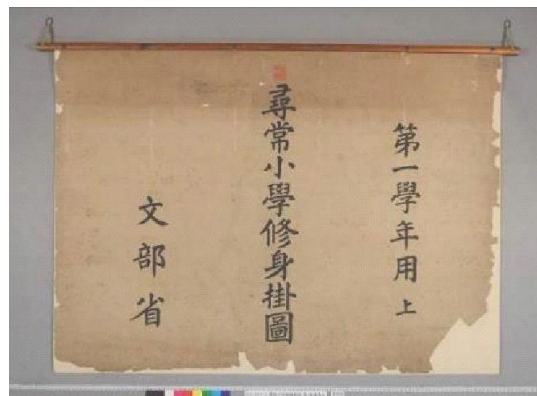 第一學年用上
尋常小學修身掛圖
文部省